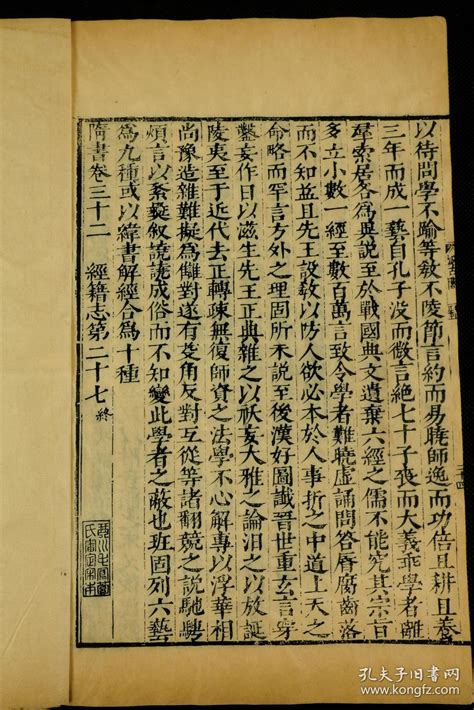 以待問學不踰等教不陵節言約而易曉師逸而功倍且耕且養
三年而成一藝自孔子没而微言絶七十子喪而大義乖學者離
羣索居各為異說至於戰國典文遺棄六經之儒不能究其宗旨
多立小數一經至數百萬言致令學者難曉虛誦問答脣腐齒落
而不知益且先王設教以防人欲必本於人事折之中道上天之
命略而罕言方外之理固所未說至後漢好圖讖晉世重玄言穿
鑿妄作日以滋生先王正典雜之以祅妄大雅之論汩之以放誕
陵夷至于近代去正轉疎無復師資之法學不心解專以浮華相
尚豫造雜難擬為讎對遂有芟角反對互從等諸翻競之說馳騁
煩言以紊彝叙譊譊成俗而不知變此學者之蔽也班固列六藝
為九種或以緯書解經合為十種
隋書卷三十二 經籍志第二十七 終
孔夫子旧书网
www.kongfz.com